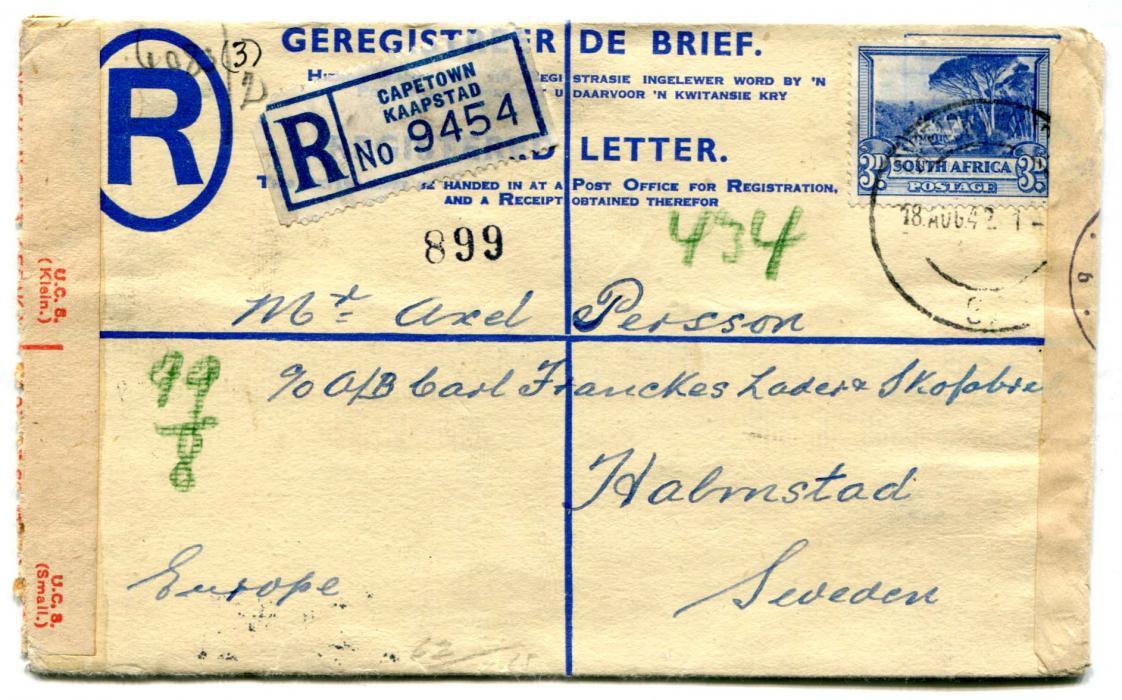 (3)
GEREGIST ER DE BRIEF.
EGISTRASIE INGELEWER WORD BY 'N
U DAARVOOR 'N KWITANSIE KRY
R
CAPETOWN
KAAPSTAD
R No 9454
D LETTER.
BE HANDED IN AT A POST OFFICE FOR REGISTRATION,
AND A RECEIPT OBTAINED THEREFOR
3D. SOUTH AFRICA 3D.
POSTAGE
18.AUG.42
899
434
6
U.C.S.
(Klein.)
Mr Axel Persson
c/o A/B Carl Franckes Läder & Skofabri
99
8
Halmstad
Europe
Sweden
U.C.S.
(Small.)
62